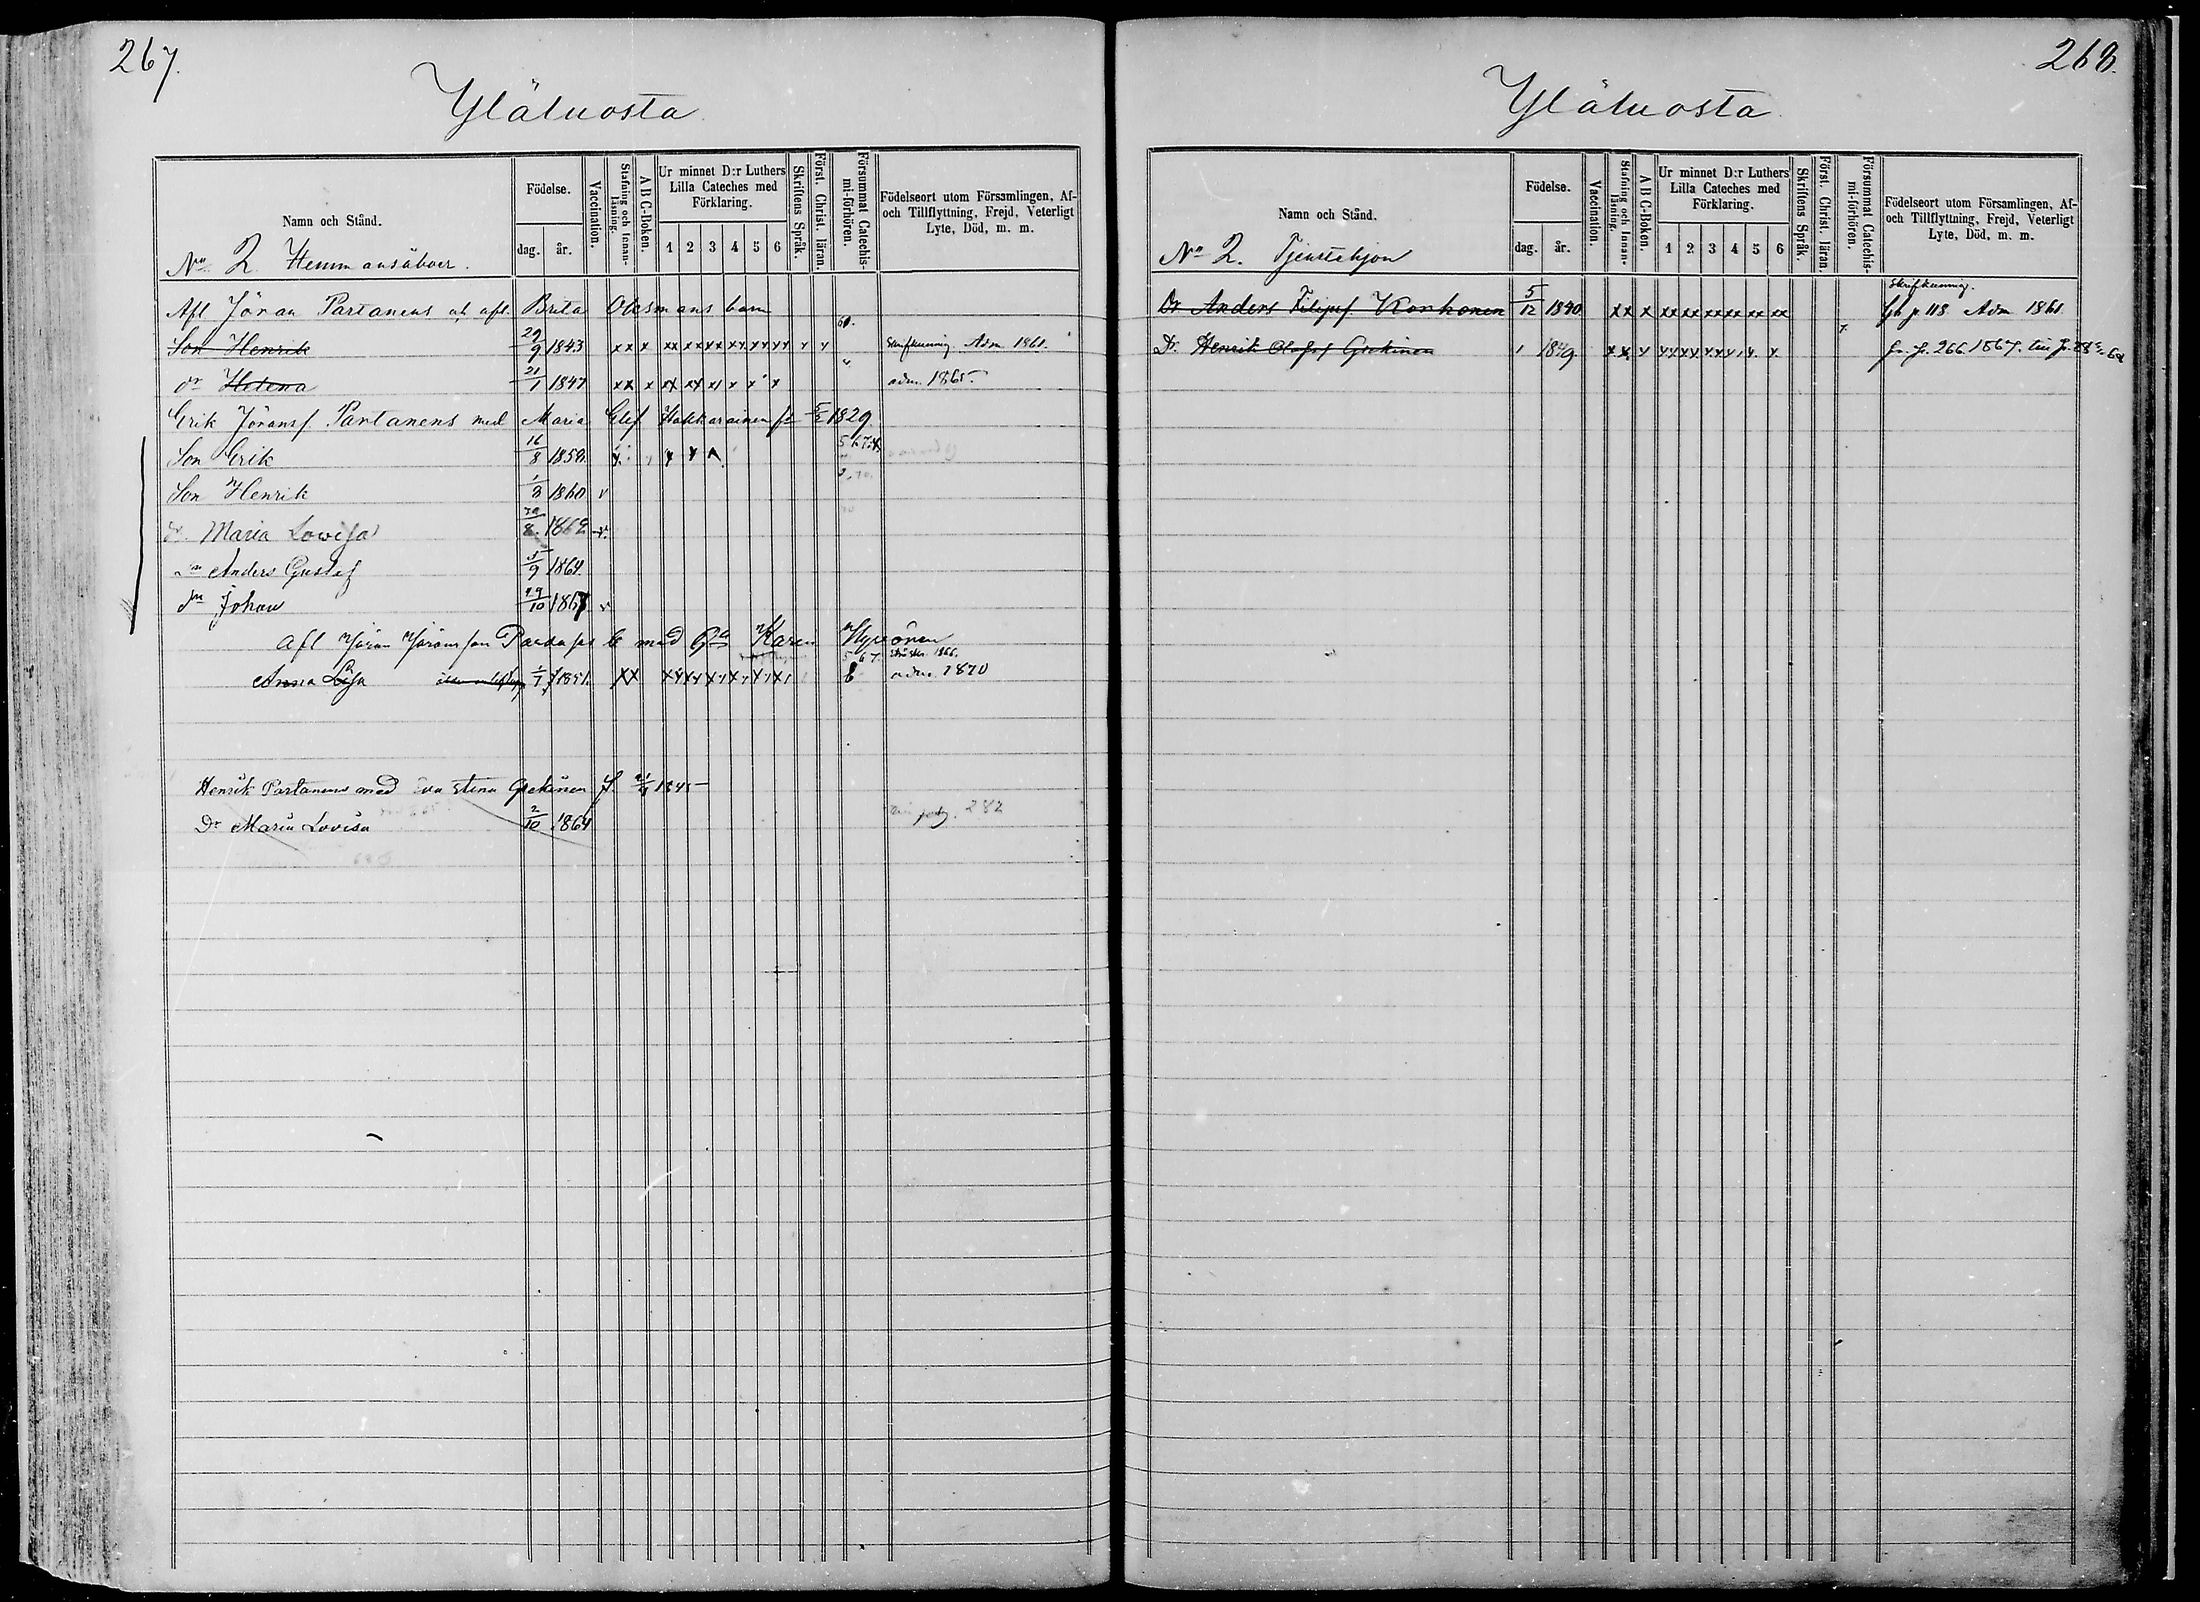 267.
Yläluosta
Namn och Stånd.
Födelse.
dag. år.
Vaccination.
Stafning och Innanläsning.
A B C-Boken.
Ur minnet D:r Luthers Lilla Cateches med Förklaring.
1 2 3 4 5 6
Skriftens Språk.
Först. Christ. läran.
Försummat Catechismi-förhören.
Födelseort utom Församlingen, Af- och Tillflyttning, Frejd, Veterligt Lyte, Död, m. m.
No 2 Hemmansåboer.
Afl Jöran Partanens och afl. Brita Olofsmans barn
Son Henrik 29/9 1843 xx x xx xx xx xx xx xx x x 60. Skriftkunnig Adm. 1861.
dr Helena 21/1 1847 xx x xx xx x x x x " adm. 1865.
Erik Jöransf. Partanens med Maria Elisf Hakkarainen 1829
Son Erik 16/8 1858
Son Henrik 1/3 1860 v
dr. Maria Lovisa 8. 1862 v.
Sn Anders Gustaf 5/9 1864.
Sn Johan 29/10 1867 v
Afl Jöran Jöransson med Karin
Anna Lisa 1/1 1851. xx 6 adm. 1870
Henrik Partanens med Eva Stina Grekinen f. 1845
Dr Maria Lovisa 2/10 1864 pag. 282
268.
Yläluosta
Namn och Stånd.
Födelse.
dag. år.
Vaccination.
Stafning och Innanläsning.
A B C-Boken.
Ur minnet D:r Luthers Lilla Cateches med Förklaring.
1 2 3 4 5 6
Skriftens Språk.
Först. Christ. läran.
Försummat Catechismi-förhören.
Födelseort utom Församlingen, Af- och Tillflyttning, Frejd, Veterligt Lyte, Död, m. m.
No 2. Tjenstehjon
Skriftkunnig.
Dr Anders Filipsf Korhonen 5/12 1840 xx x xx xx xx xx xx xx p 118 Adm 1861
Dr. Henrik Olofsf Grekinen 1849 xx x fr. p. 266 1867.